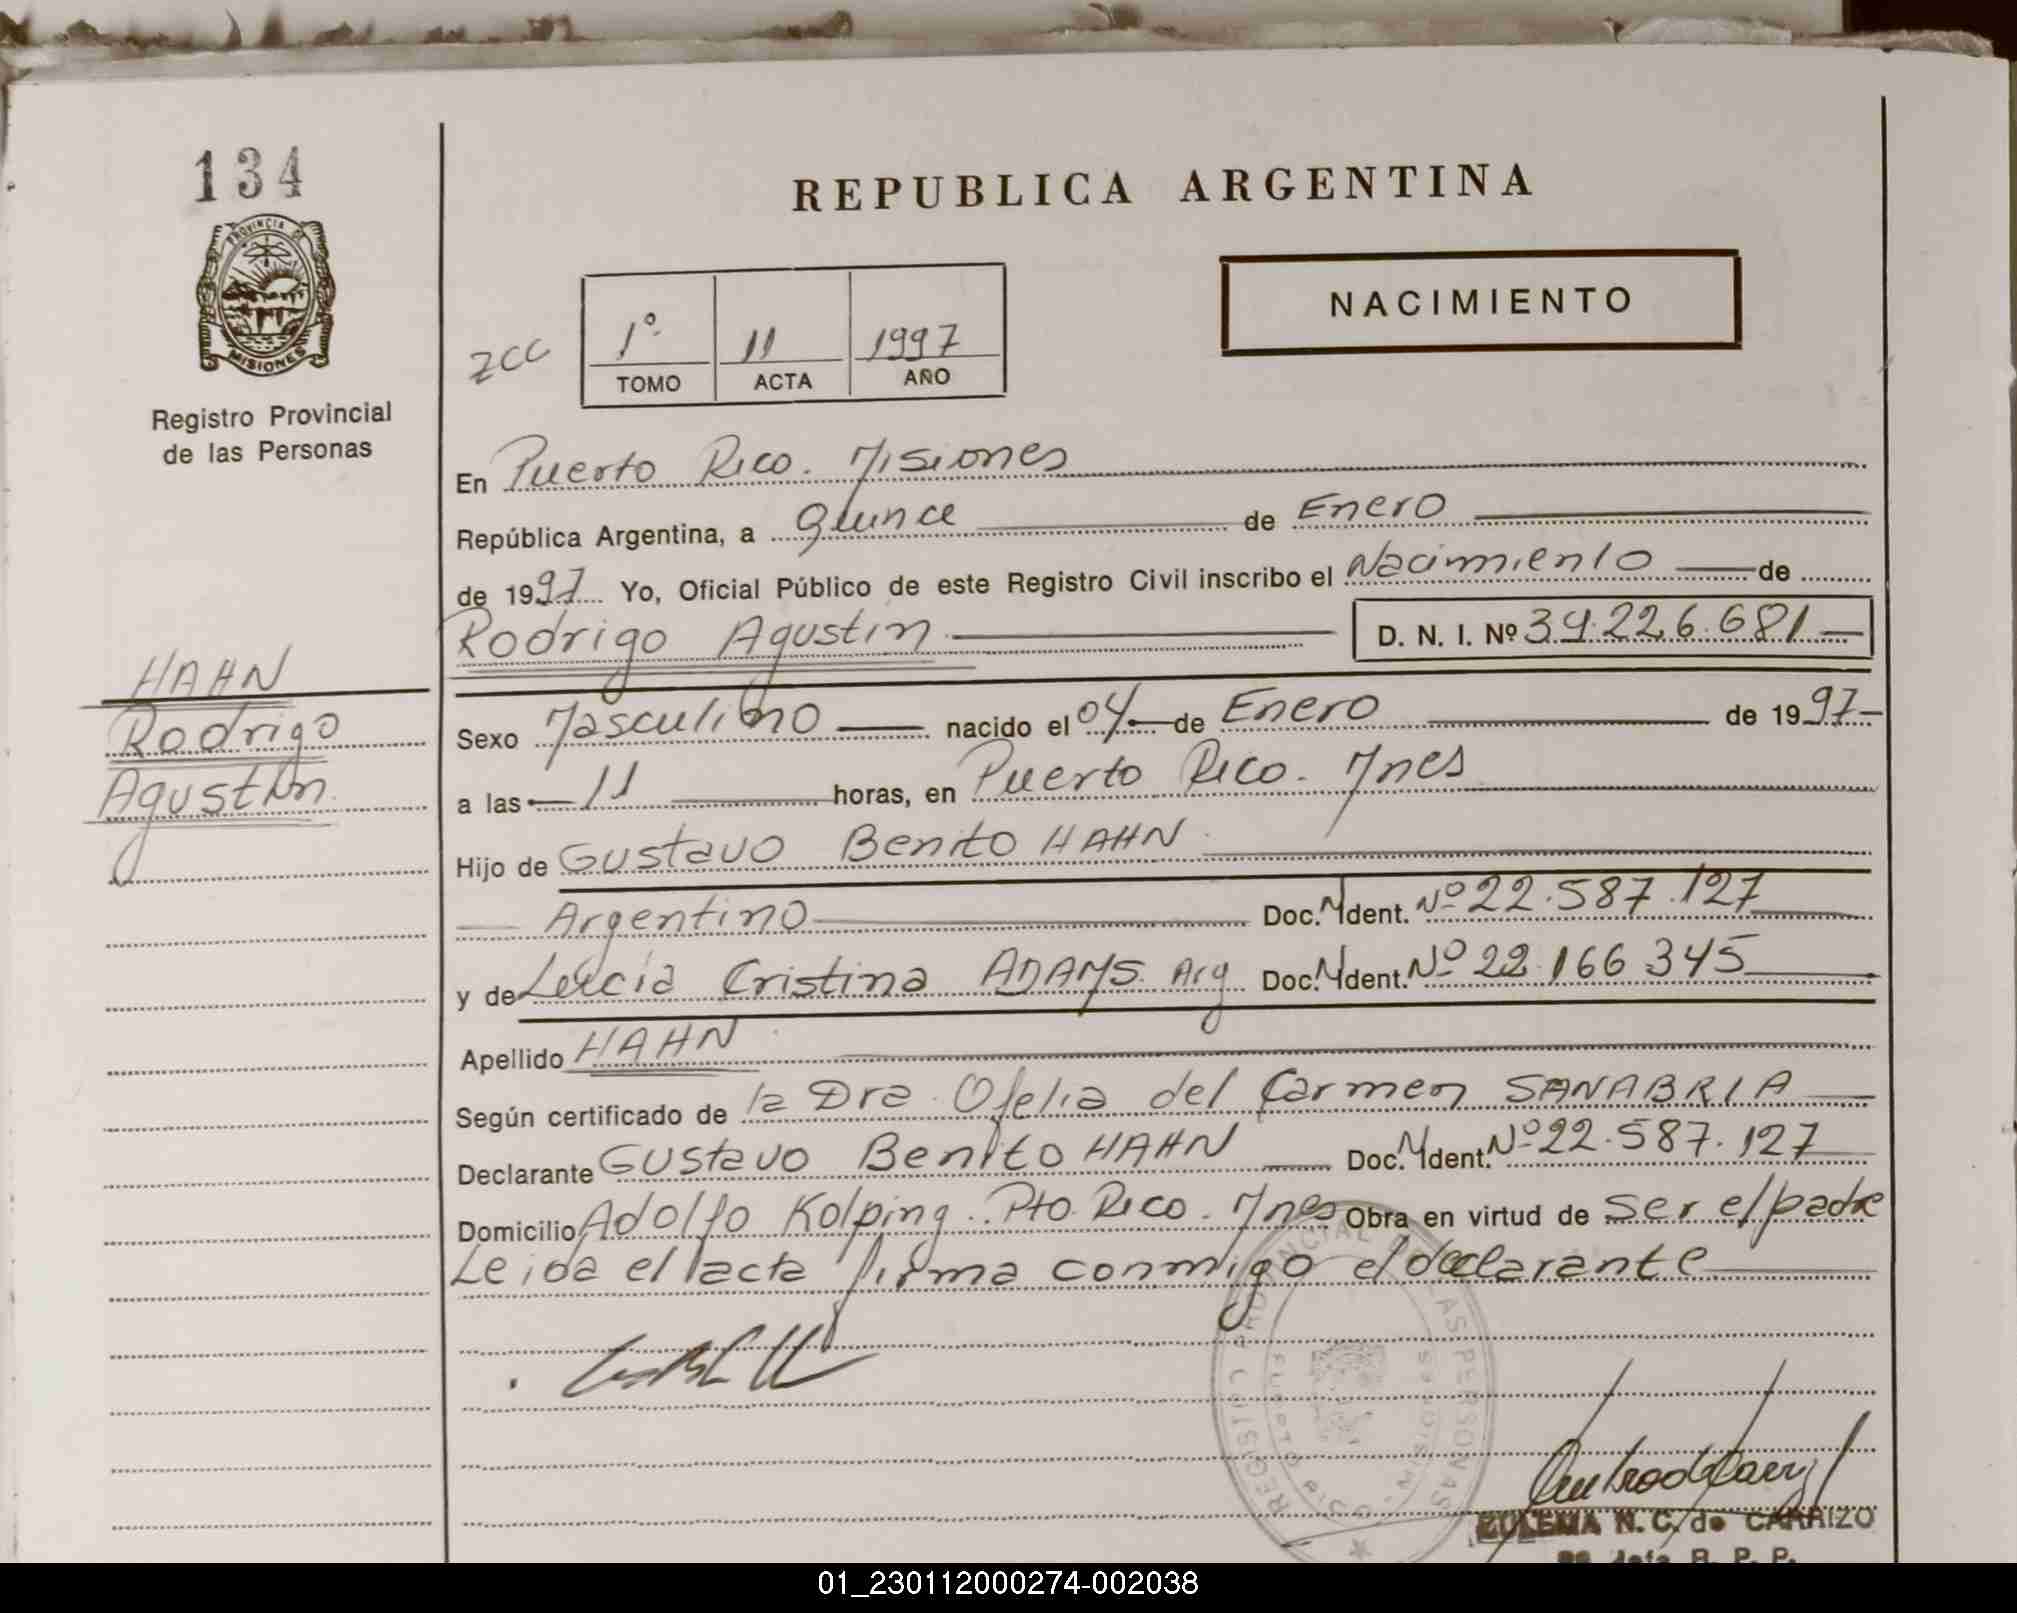 134
PROVINCIA DE
MISIONES
Registro Provincial
de las Personas
REPUBLICA ARGENTINA
NACIMIENTO
1º 11 1997
TOMO ACTA AÑO
En Puerto Rico. Misiones
República Argentina, a Quince de Enero
de 1997 Yo, Oficial Público de este Registro Civil inscribo el Nacimiento de
Rodrigo Agustin D. N. I. Nº 39.226.681
HAHN
Rodrigo
Agustin
Sexo Masculino nacido el 04 de Enero de 1997
a las 11 horas, en Puerto Rico. Mnes
Hijo de Gustavo Benito HAHN
Argentino Doc. M Ident. Nº 22.587.127
y de Lucia Cristina ADAMS. Arg Doc. M Ident. Nº 22.166.345
Apellido HAHN
Según certificado de la Dra. Ofelia del Carmen SANABRIA
Declarante Gustavo Benito HAHN Doc. M Ident. Nº 22.587.127
Domicilio Adolfo Kolping. Pto Rico. Mnes Obra en virtud de ser el padre
Leida el acta firma conmigo el declarante
REGISTRO PROVINCIAL DE LAS PERSONAS
PUERTO RICO MISIONES
ZULEMA N. C. de CARRIZO
Jefa R. P. P.
01_230112000274-002038